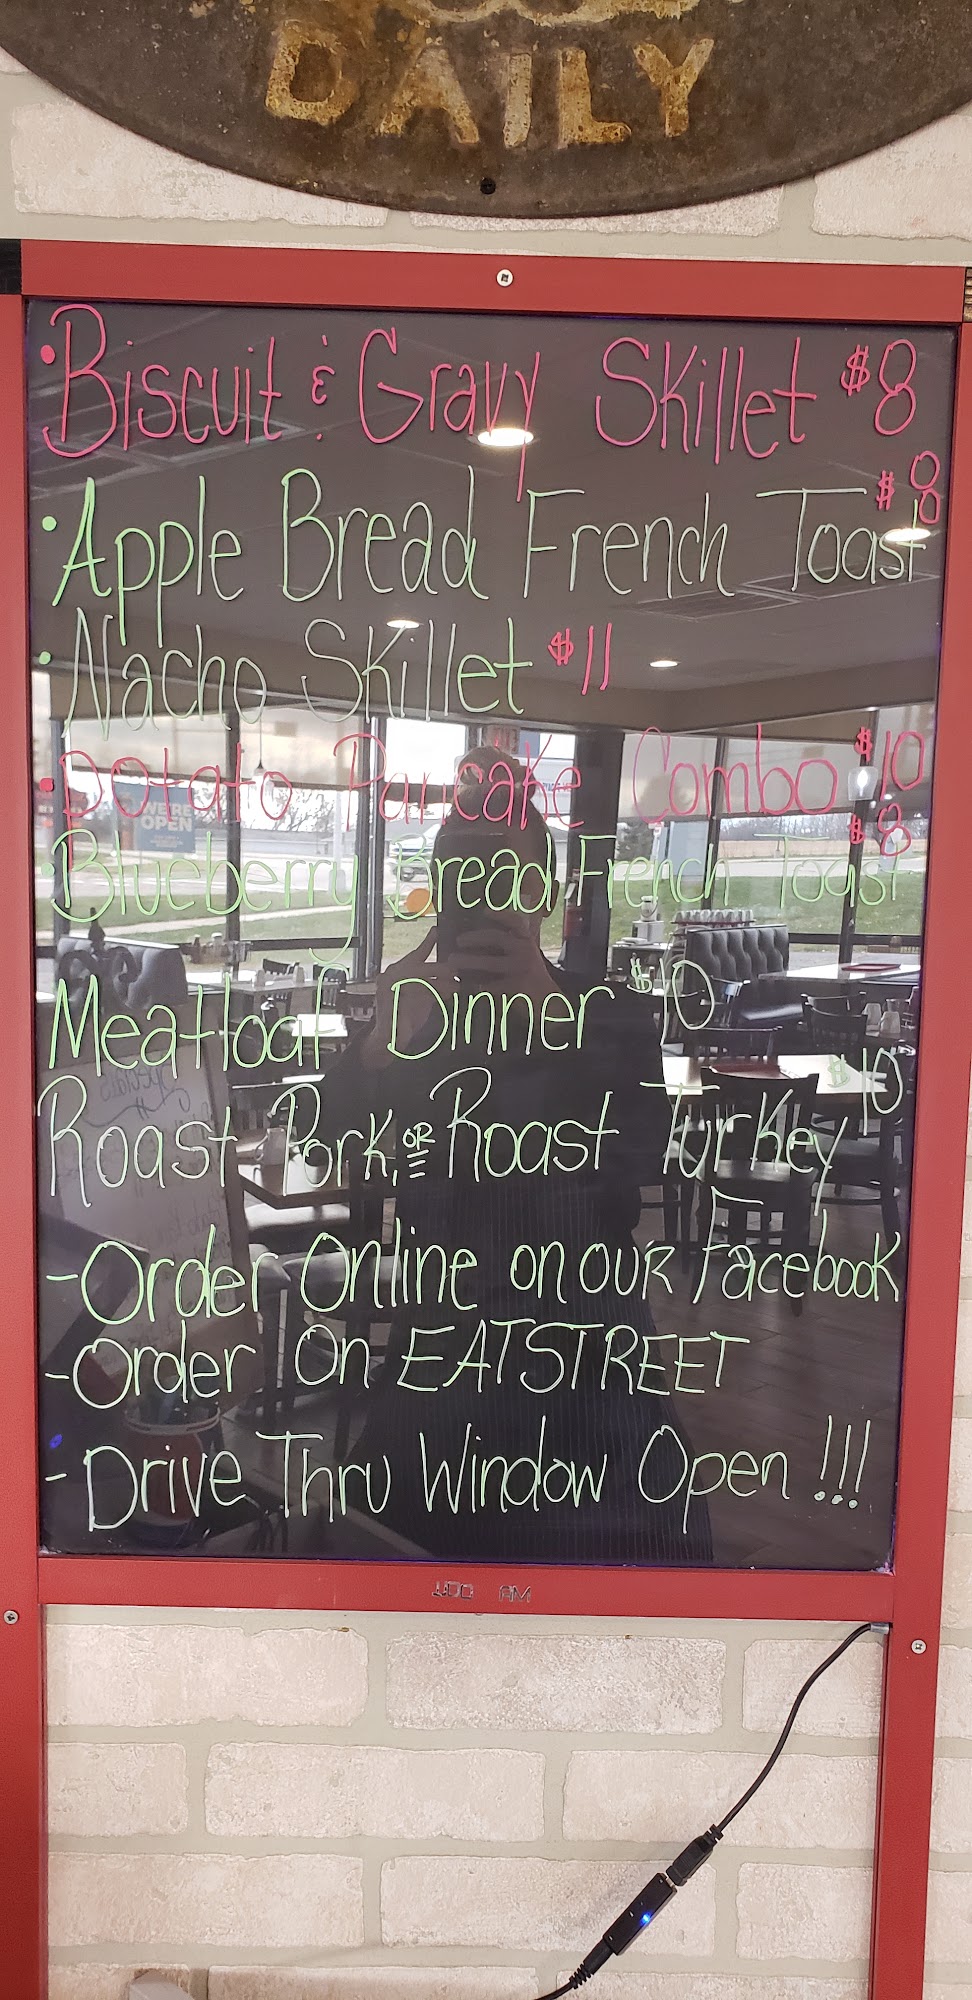 DAILY
• Biscuit & Gravy Skillet $8
• Apple Bread French Toast $8
• Nacho Skillet $11
• Potato Pancake Combo $10
• Blueberry Bread French Toast $8
Meatloaf Dinner $10
Roast Pork, OR Roast Turkey $10
- Order Online on our Facebook
- Order On EATSTREET
- Drive Thru Window Open !!!
WE'RE
OPEN